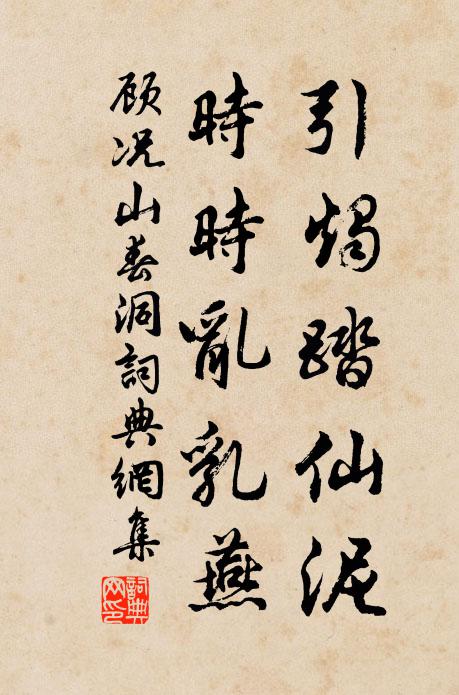 引燭踏仙泥
時時亂乳燕
顾况山春洞詞典網集
詞典網印